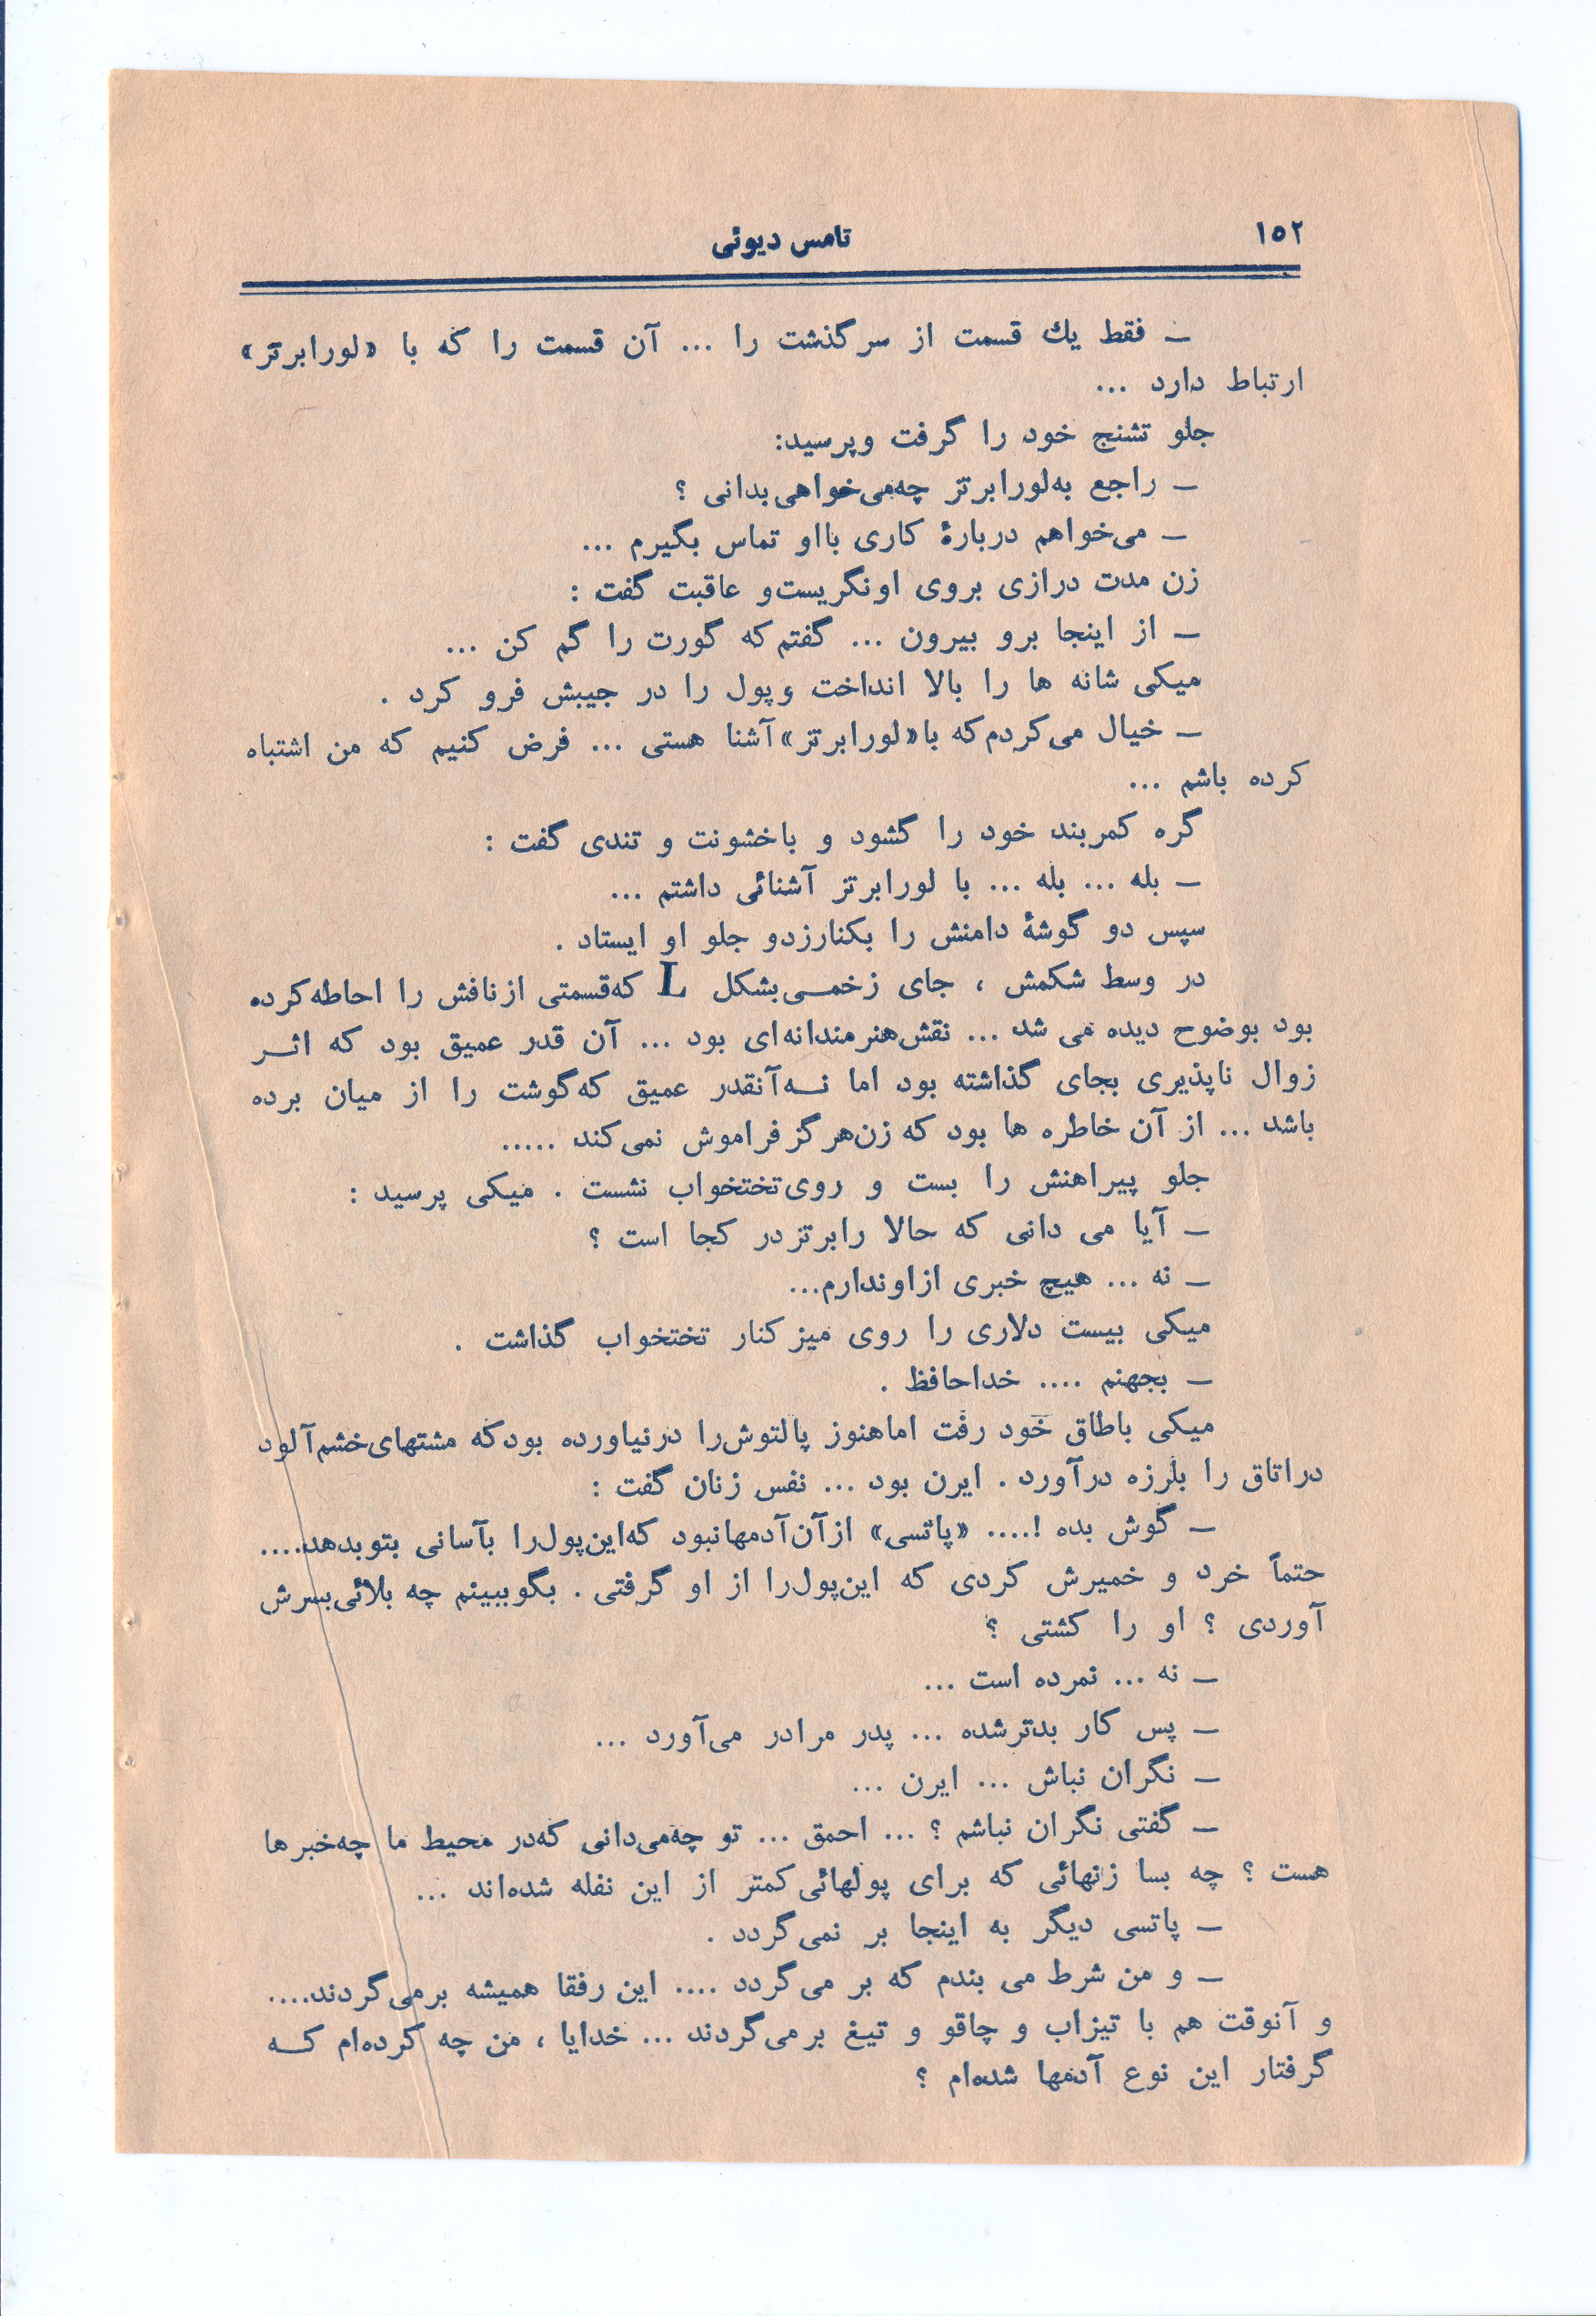 ۱۵۲
تامس دیوئی
ـ فقط یك قسمت از سرگذشت را ... آن قسمت را که با «لورابرتز»
ارتباط دارد ...
جلو تشنج خود را گرفت وپرسید:
ـ راجع به‌لورابرتز چه‌می‌خواهی‌بدانی ؟
ـ می‌خواهم دربارهٔ کاری بااو تماس بگیرم ...
زن مدت درازی بروی اونگریست‌و عاقبت گفت :
ـ از اینجا برو بیرون ... گفتم‌که گورت را گم کن ...
میکی شانه ها را بالا انداخت وپول را در جیبش فرو کرد .
ـ خیال می‌کردم‌که با«لورابرتز»آشنا هستی ... فرض کنیم که من اشتباه
کرده باشم ...
گره کمربند خود را گشود و باخشونت و تندی گفت :
ـ بله ... بله ... با لورابرتز آشنائی داشتم ...
سپس دو گوشهٔ دامنش را بکنارزدو جلو او ایستاد .
در وسط شکمش ، جای زخمـی‌بشکل L که‌قسمتی ازنافش را احاطه‌کرده
بود بوضوح دیده می شد ... نقش‌هنرمندانه‌ای بود ... آن قدر عمیق بود که اثـر
زوال ناپذیری بجای گذاشته بود اما نـه‌آنقدر عمیق که‌گوشت را از میان برده
باشد ... از آن خاطره ها بود که زن‌هرگزفراموش نمی‌کند .....
جلو پیراهنش را بست و روی‌تختخواب نشست . میکی پرسید :
ـ آیا می دانی که حالا رابرتزدر کجا است ؟
ـ نه ... هیچ خبری ازاوندارم...
میکی بیست دلاری را روی میزکنار تختخواب گذاشت .
ـ بجهنم .... خداحافظ .
میکی باطاق خود رفت اماهنوز پالتوش‌را درنیاورده بودکه مشتهای‌خشم‌آلود
دراتاق را بلرزه درآورد . ایرن بود ... نفس زنان گفت :
ـ گوش بده !.... «پاتسی» ازآن‌آدمهانبود که‌این‌پول‌را بآسانی بتوبدهد....
حتماً خرد و خمیرش کردی که این‌پول‌را از او گرفتی . بگوببینم چه بلائی‌بسرش
آوردی ؟ او را کشتی ؟
ـ نه ... نمرده است ...
ـ پس کار بدترشده ... پدر مرادر می‌آورد ...
ـ نگران نباش ... ایرن ...
ـ گفتی نگران نباشم ؟ ... احمق ... تو چه‌می‌دانی که‌در محیط ما چه‌خبرها
هست ؟ چه بسا زنهائی که برای پولهائی‌کمتر از این نفله شده‌اند ...
ـ پاتسی دیگر به اینجا بر نمی‌گردد .
ـ و من شرط می بندم که بر می‌گردد .... این رفقا همیشه برمی‌گردند....
و آنوقت هم با تیزاب و چاقو و تیغ برمی‌گردند ... خدایا ، من چه کرده‌ام کـه
گرفتار این نوع آدمها شده‌ام ؟